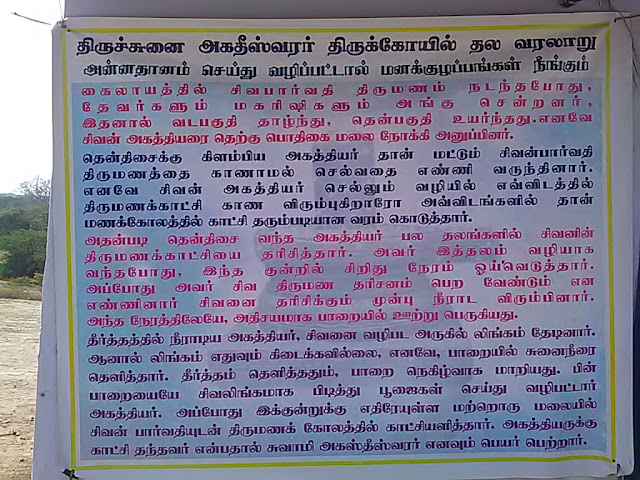 திருச்சுனை அகதீஸ்வரர் திருக்கோயில் தல வரலாறு
அன்னதானம் செய்து வழிபட்டால் மனக்குழப்பங்கள் நீங்கும்
கைலாயத்தில் சிவபார்வதி திருமணம் நடந்தபோது,
தேவர்களும் மகரிஷிகளும் அங்கு சென்றனர்,
இதனால் வடபகுதி தாழ்ந்து, தென்பகுதி உயர்ந்தது.எனவே
சிவன் அகத்தியரை தெற்கு பொதிகை மலை நோக்கி அனுப்பினர்.
தென்திசைக்கு கிளம்பிய அகத்தியர் தான் மட்டும் சிவன்பார்வதி
திருமணத்தை காணாமல் செல்வதை எண்ணி வருந்தினார்.
எனவே சிவன் அகத்தியர் செல்லும் வழியில் எவ்விடத்தில்
திருமணக்காட்சி காண விரும்புகிறாரோ அவ்விடங்களில் தான்
மணக்கோலத்தில் காட்சி தரும்படியான வரம் கொடுத்தார்.
அதன்படி தென்திசை வந்த அகத்தியர் பல தலங்களில் சிவனின்
திருமணக்காட்சியை தரிசித்தார். அவர் இத்தலம் வழியாக
வந்தபோது, இந்த குன்றில் சிறிது நேரம் ஓய்வெடுத்தார்.
அப்போது அவர் சிவ திருமண தரிசனம் பெற வேண்டும் என
எண்ணினார் சிவனை தரிசிக்கும் முன்பு நீராட விரும்பினார்.
அந்த நேரத்திலேயே, அதிசயமாக பாறையில் ஊற்று பெருகியது.
தீர்த்தத்தில் நீராடிய அகத்தியர், சிவனை வழிபட அருகில் லிங்கம் தேடினார்.
ஆனால் லிங்கம் எதுவும் கிடைக்கவில்லை, எனவே, பாறையில் சுனைநீரை
தெளித்தார். தீர்த்தம் தெளித்ததும், பாறை நெகிழ்வாக மாறியது. பின்
பாறையையே சிவலிங்கமாக பிடித்து பூஜைகள் செய்து வழிபட்டார்
அகத்தியர். அப்போது இக்குன்றுக்கு எதிரேயுள்ள மற்றொரு மலையில்
சிவன் பார்வதியுடன் திருமணக் கோலத்தில் காட்சியளித்தார். அகத்தியருக்கு
காட்சி தந்தவர் என்பதால் சுவாமி அகஸ்தீஸ்வரர் எனவும் பெயர் பெற்றார்.